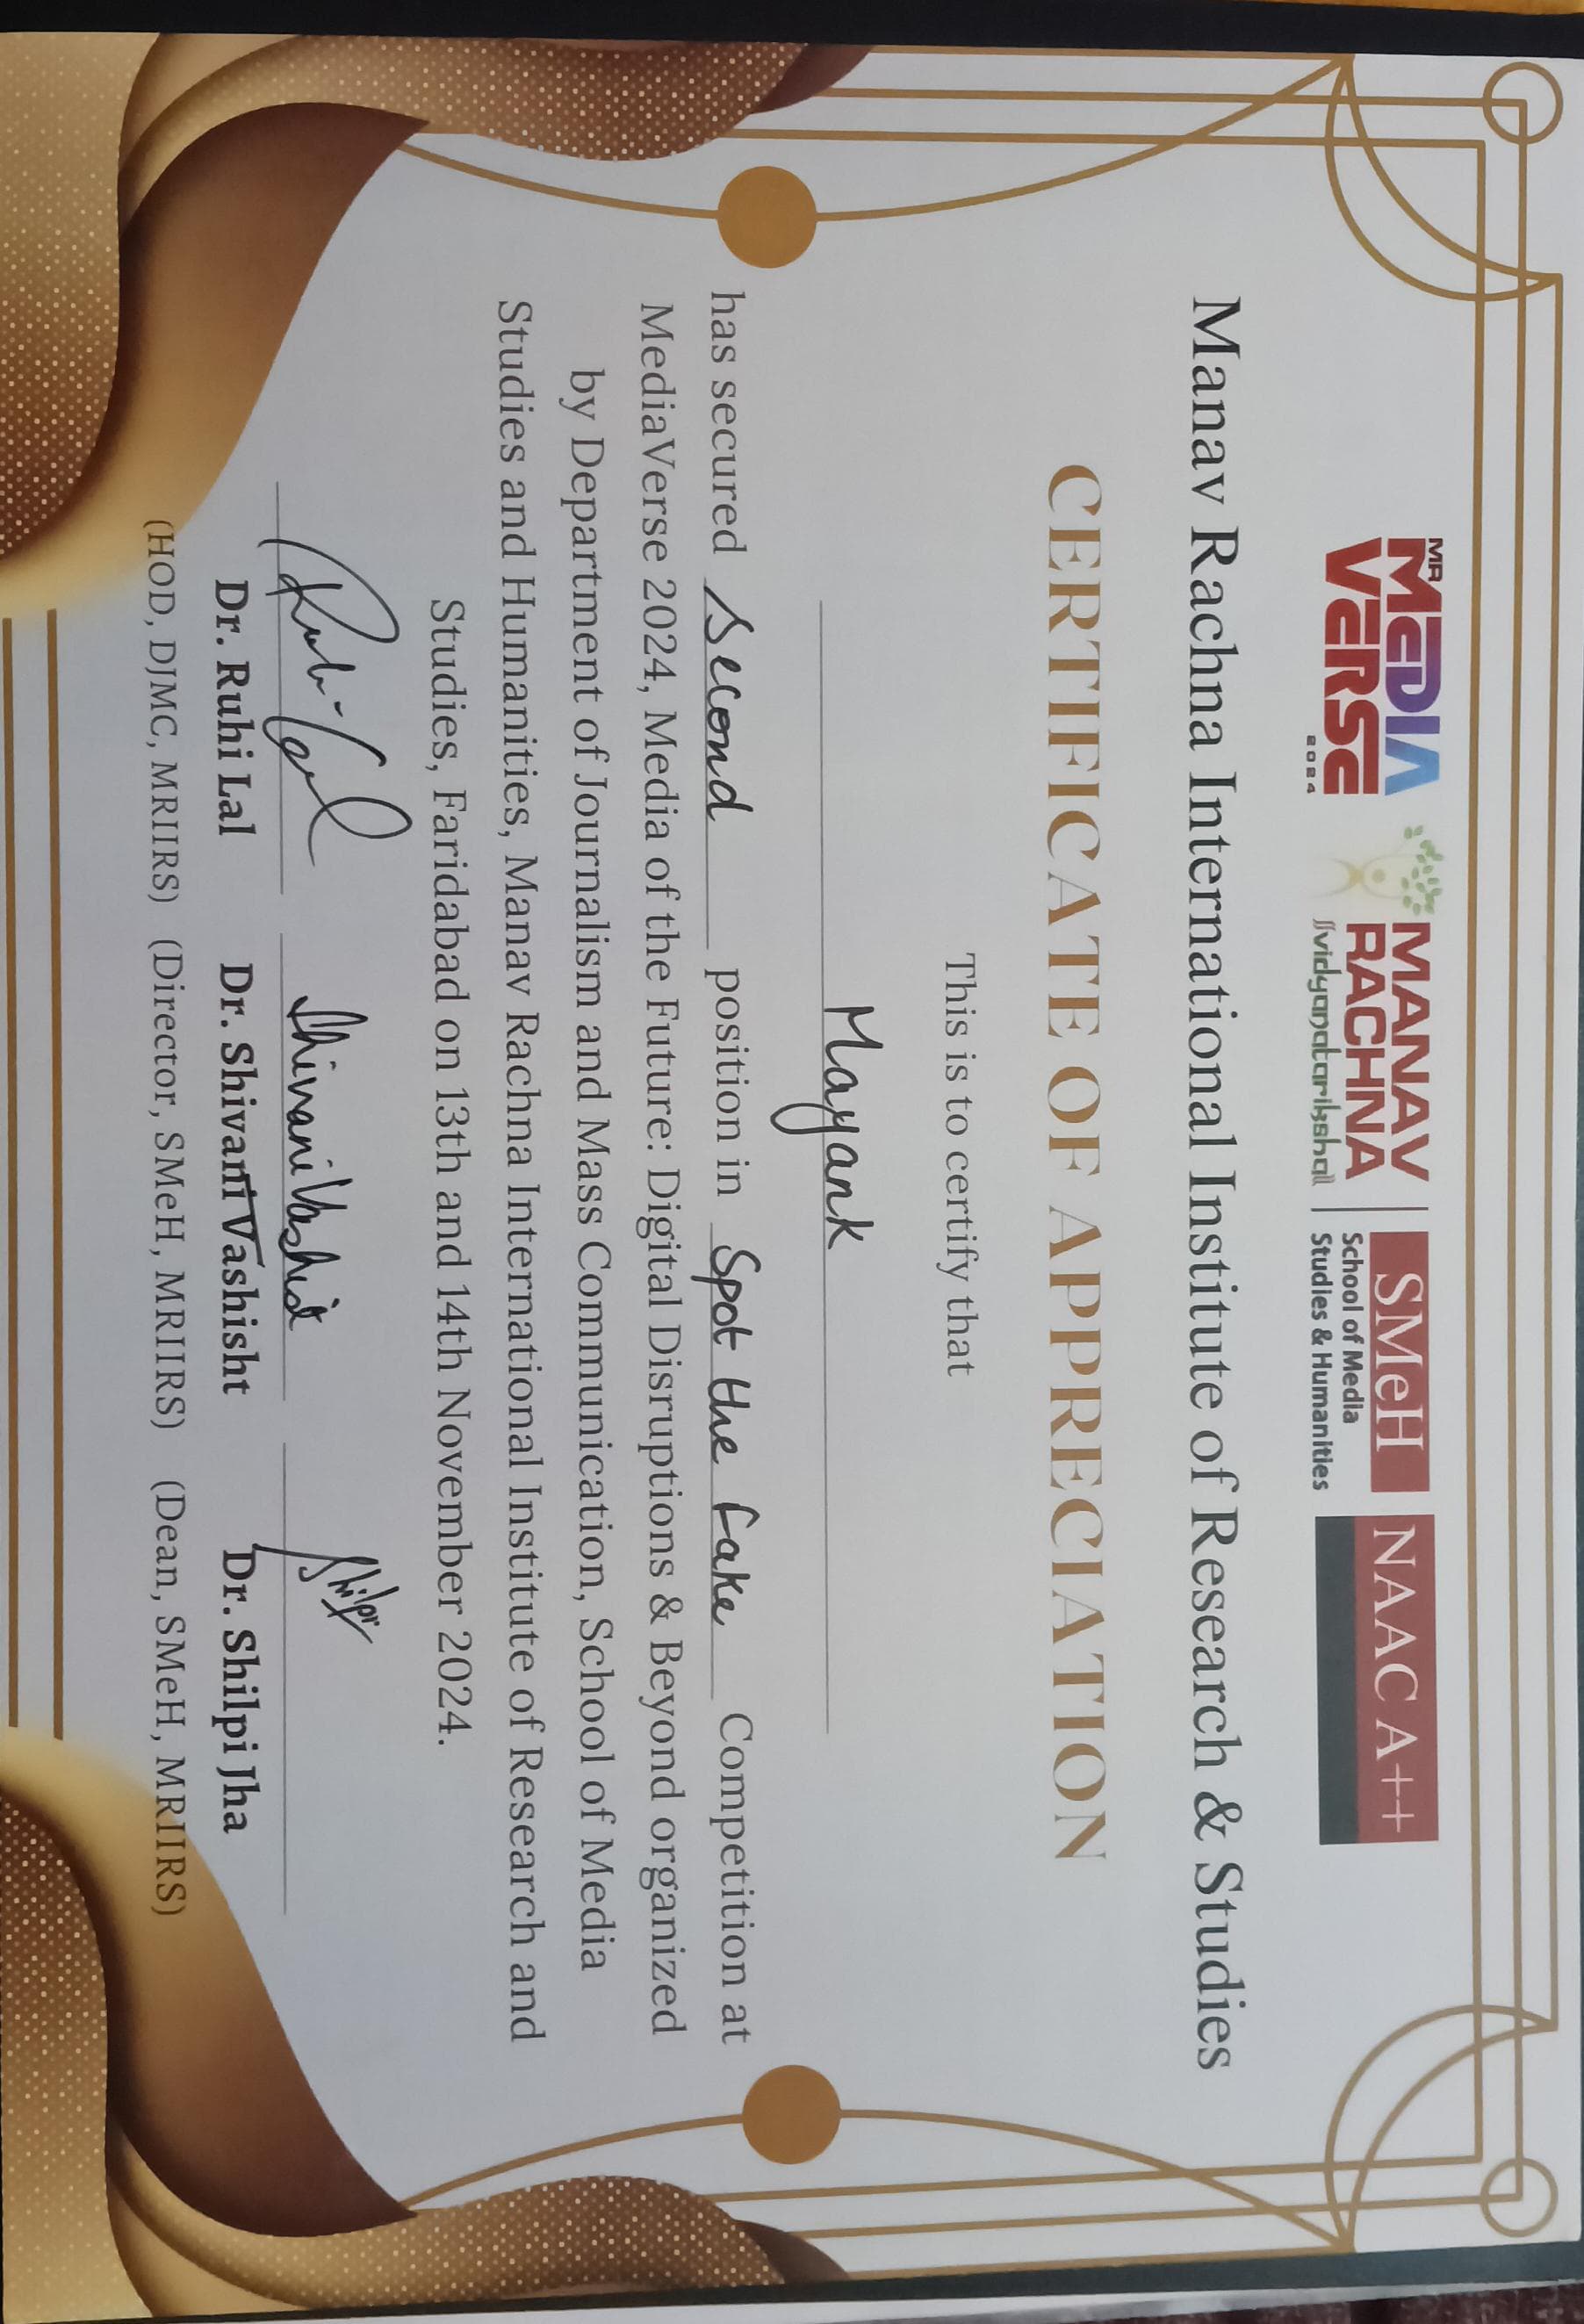 MR
MEDIA
VERSE
2024
MANAV
RACHNA
vidyanatariksha
SMeH
School of Media
Studies & Humanities
NAAC A++
Manav Rachna International Institute of Research & Studies
CERTIFICATE OF APPRECIATION
This is to certify that
Mayank
has secured Second position in Spot the Fake Competition at
MediaVerse 2024, Media of the Future: Digital Disruptions & Beyond organized
by Department of Journalism and Mass Communication, School of Media
Studies and Humanities, Manav Rachna International Institute of Research and
Studies, Faridabad on 13th and 14th November 2024.
Ruhi Lal Shivani Vashisht Shilpi
Dr. Ruhi Lal Dr. Shivani Vashisht Dr. Shilpi Jha
(HOD, DJMC, MRIIRS) (Director, SMeH, MRIIRS) (Dean, SMeH, MRIIRS)